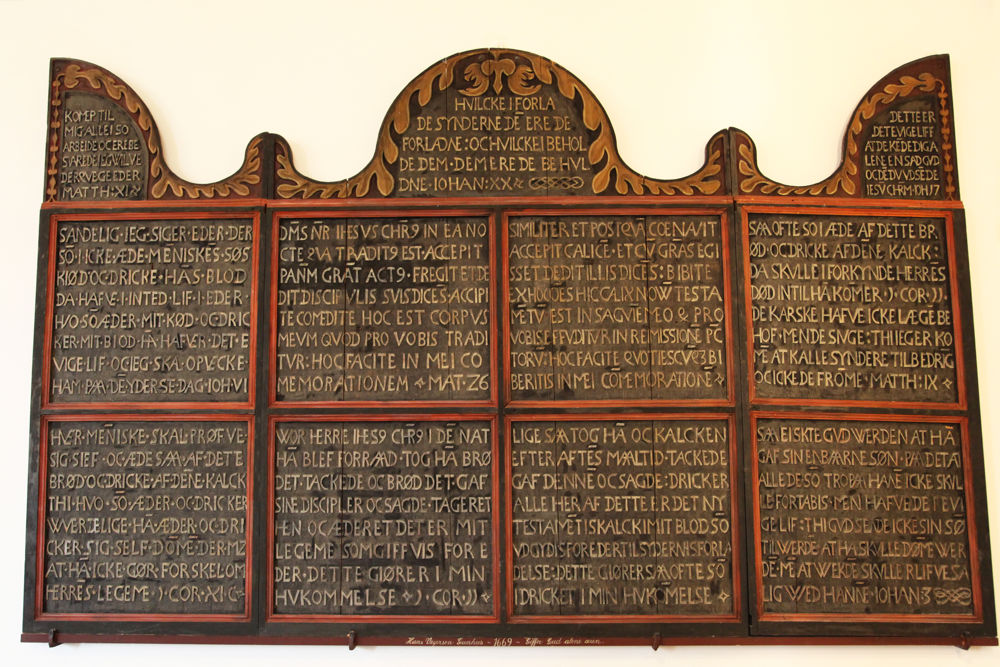 KOMER TIL
MIG ALLE I SOM
ARBEIDE OC ERE BE
SVAREDE IEG WIL VE
DER QVEGE EDER
MATTH: XI
HVILCKE I FORLA
DE SYNDERNE DE ERE DE
FORLADNE: OCH HVILCKE I BEHOL
DE DEM: DEM ERE DE BEHVL
DNE IOHAN: XX
DETTE ER
DET EVIGE LIFF
AT DE KEDE DIG A
LENE EN SAD GVD
OC DE
IESV CHRM IOH 17
SANDELIG IEG SIGER EDER DER
SO I ICKE ÆDE MENISKES SØS
KIØD OC DRICKE HAS BLOD
DA HAFVE I INTED LIF I EDER
HVO SO ÆDER MIT KØD OC DRIC
KER MIT BLOD HA HAFVER DET E
VIGE LIF OC IEG SKAL OPVECKE
HAM PAA DEN YDERSE DAG IOH VI
DMS NR IHESVS CHR9 IN EA NO
CTE QVA TRADIT9 EST ACCEPIT
PANM GRAT ACT9 FREGIT ET DE
DIT DISCIPVLIS SVIS DICES ACCIPI
TE COMEDITE HOC EST CORPVS
MEVM QVOD PRO VOBIS TRADI
TVR: HOC FACITE IN MEI CO
MEMORATIONEM MAT: 26
SIMILITER ET POSTQVA COENAVIT
ACCEPIT CALICE ET CV GRAS EGI
SSET DEDIT ILLIS DICES: BIBITE
EX HOC OES HIC CALIX NOW TESTA
METV EST IN SAGVIE MEO Q PRO
VOBIS EFVDITVR IN REMISSIONE PC
TORV: HOC FACITE QVOTIESCVQ3 BI
BERITIS IN MEI COMEMORATIONE
SAA OFTE SO I ÆDE AF DETTE BR
ØD OC DRICKE AF DENE KALCK:
DA SKVLLE I FORKYNDE HERRES
DØD INTIL HA KOMER I COR II
DE KARSKE HAFVE ICKE LÆGE BE
HOF MEN DE SIVGE: THI IEG ER KO
MEN AT KALLE SYNDERE TIL BEDRIG
OC ICKE DE FROME MATTH: IX
HVER MENISKE SKAL PRØFVE
SIG SIELF OC ÆDE SAA AF DETTE
BRØD OC DRICKE AF DENE KALCK
THI HVO SO ÆDER OC DRICKER
WVERDELIGE HA ÆDER OC DRI
CKER SIG SELF DOME DER MZ
AT HA ICKE GØR FORSKEL OM
HERRES LEGEME I COR XI
WOR HERRE IHES9 CHR9 I DE NAT
HA BLEF FORRAAD TOG HA BRØ
DET TACKEDE OC BRØD DET GAF
SINE DISCIPLER OC SAGDE TAGER ET
HEN OC ÆDER ET DET ER MIT
LEGEME SOM GIFFVIS FOR E
DER DETTE GIØRER I MIN
HVKOMMELSE I COR II
LIGE SAA TOG HA OC KALCKEN
EFTER AFTES MAALTID TACKEDE
GAF DEN NE OC SAGDE: DRICKER
ALLE HER AF DETTE ER DET NY
TESTAMET I SKALCK I MIT BLOD SO
VDGYDIS FOR EDER TIL SYDERNIS FORLA
DELSE: DETTE GIØRER SAA OFTE SO
I DRICKET I MIN HVKOMELSE
SAA ELSKTE GVD WERDEN AT HA
GAF SIN ENBAARNE SØN PAA DET A
ALLE DE SO TRO PA HANE ICKE SKVL
LE FORTABIS MEN HAFVE DET EVI
GE LIF: THI GVD SEDE ICKE SIN SØ
TIL WERDE AT HA SKVLLE DØME WER
DE MEN AT WERDE SKVLLE BLIFVE SA
LIG WED HANNE IOHAN 3
1669